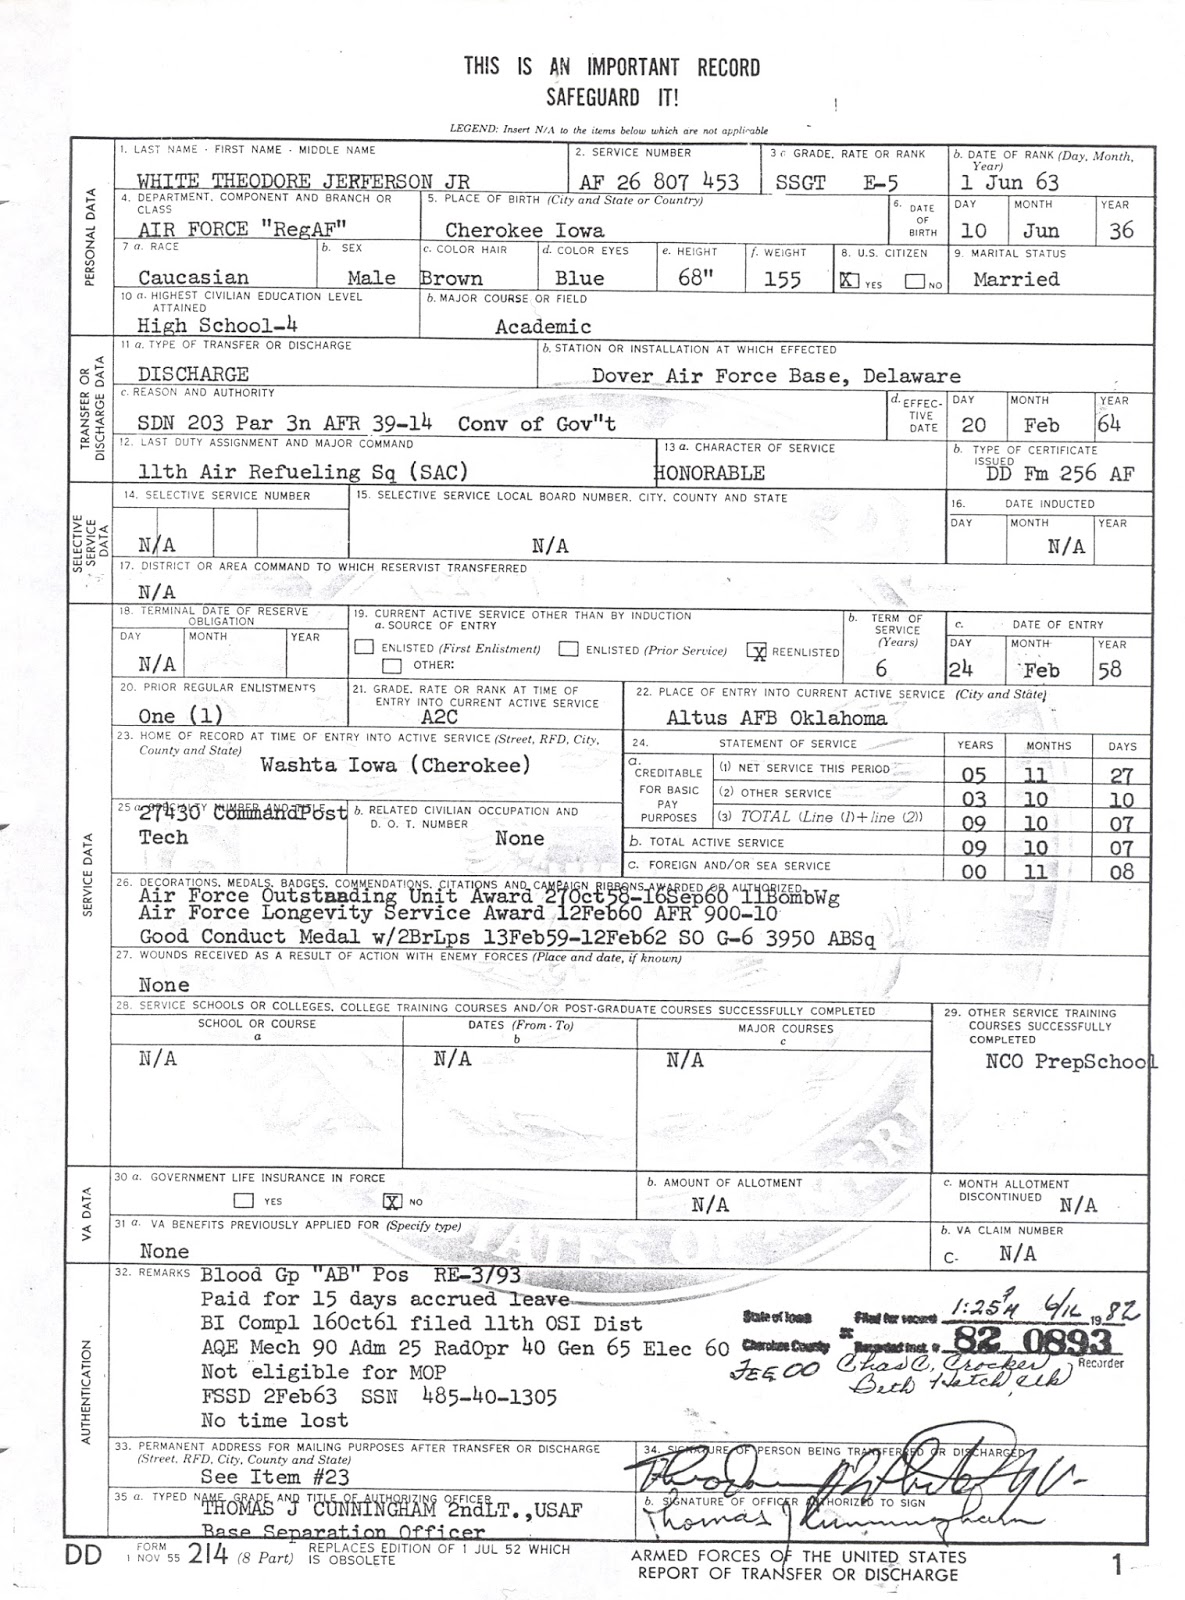 THIS IS AN IMPORTANT RECORD
SAFEGUARD IT!
LEGEND: Insert N/A to the items below which are not applicable
PERSONAL DATA
1. LAST NAME - FIRST NAME - MIDDLE NAME
WHITE THEODORE JEFFERSON JR
2. SERVICE NUMBER
AF 26 807 453
3 a GRADE, RATE OR RANK
SSGT E-5
b. DATE OF RANK (Day, Month, Year)
1 Jun 63
4. DEPARTMENT, COMPONENT AND BRANCH OR CLASS
AIR FORCE "RegAF"
5. PLACE OF BIRTH (City and State or Country)
Cherokee Iowa
6. DATE OF BIRTH
DAY MONTH YEAR
10 Jun 36
7 a. RACE
Caucasian
b. SEX
Male
c. COLOR HAIR
Brown
d. COLOR EYES
Blue
e. HEIGHT
68"
f. WEIGHT
155
8. U.S. CITIZEN
X YES NO
9. MARITAL STATUS
Married
10 a. HIGHEST CIVILIAN EDUCATION LEVEL ATTAINED
High School-4
b. MAJOR COURSE OR FIELD
Academic
TRANSFER OR DISCHARGE DATA
11 a. TYPE OF TRANSFER OR DISCHARGE
DISCHARGE
b. STATION OR INSTALLATION AT WHICH EFFECTED
Dover Air Force Base, Delaware
c. REASON AND AUTHORITY
SDN 203 Par 3n AFR 39-14 Conv of Gov"t
d. EFFECTIVE DATE
DAY MONTH YEAR
20 Feb 64
12. LAST DUTY ASSIGNMENT AND MAJOR COMMAND
11th Air Refueling Sq (SAC)
13 a. CHARACTER OF SERVICE
HONORABLE
b. TYPE OF CERTIFICATE ISSUED
DD Fm 256 AF
SELECTIVE SERVICE DATA
14. SELECTIVE SERVICE NUMBER
N/A
15. SELECTIVE SERVICE LOCAL BOARD NUMBER, CITY, COUNTY AND STATE
N/A
16. DATE INDUCTED
DAY MONTH YEAR
N/A
17. DISTRICT OR AREA COMMAND TO WHICH RESERVIST TRANSFERRED
N/A
SERVICE DATA
18. TERMINAL DATE OF RESERVE OBLIGATION
DAY MONTH YEAR
N/A
19. CURRENT ACTIVE SERVICE OTHER THAN BY INDUCTION
a. SOURCE OF ENTRY
ENLISTED (First Enlistment) ENLISTED (Prior Service) X REENLISTED
OTHER:
b. TERM OF SERVICE (Years)
6
c. DATE OF ENTRY
DAY MONTH YEAR
24 Feb 58
20. PRIOR REGULAR ENLISTMENTS
One (1)
21. GRADE, RATE OR RANK AT TIME OF ENTRY INTO CURRENT ACTIVE SERVICE
A2C
22. PLACE OF ENTRY INTO CURRENT ACTIVE SERVICE (City and State)
Altus AFB Oklahoma
23. HOME OF RECORD AT TIME OF ENTRY INTO ACTIVE SERVICE (Street, RFD, City, County and State)
Washta Iowa (Cherokee)
24. STATEMENT OF SERVICE YEARS MONTHS DAYS
a. CREDITABLE FOR BASIC PAY PURPOSES
(1) NET SERVICE THIS PERIOD 05 11 27
(2) OTHER SERVICE 03 10 10
(3) TOTAL (Line (1)+line (2)) 09 10 07
b. TOTAL ACTIVE SERVICE 09 10 07
c. FOREIGN AND/OR SEA SERVICE 00 11 08
25 a. SPECIALTY NUMBER AND TITLE
27430 CommandPost
Tech
b. RELATED CIVILIAN OCCUPATION AND D. O. T. NUMBER
None
26. DECORATIONS, MEDALS, BADGES, COMMENDATIONS, CITATIONS AND CAMPAIGN RIBBONS AWARDED OR AUTHORIZED
Air Force Outstanding Unit Award 27Oct58-16Sep60 11BombWg
Air Force Longevity Service Award 12Feb60 AFR 900-10
Good Conduct Medal w/2BrLps 13Feb59-12Feb62 SO G-6 3950 ABSq
27. WOUNDS RECEIVED AS A RESULT OF ACTION WITH ENEMY FORCES (Place and date, if known)
None
28. SERVICE SCHOOLS OR COLLEGES, COLLEGE TRAINING COURSES AND/OR POST-GRADUATE COURSES SUCCESSFULLY COMPLETED
SCHOOL OR COURSE a DATES (From - To) b MAJOR COURSES c
N/A N/A N/A
29. OTHER SERVICE TRAINING COURSES SUCCESSFULLY COMPLETED
NCO PrepSchool
VA DATA
30 a. GOVERNMENT LIFE INSURANCE IN FORCE
YES X NO
b. AMOUNT OF ALLOTMENT
N/A
c. MONTH ALLOTMENT DISCONTINUED
N/A
31 a. VA BENEFITS PREVIOUSLY APPLIED FOR (Specify type)
None
b. VA CLAIM NUMBER
C- N/A
AUTHENTICATION
32. REMARKS Blood Gp "AB" Pos RE-3/93
Paid for 15 days accrued leave
BI Compl 16Oct61 filed 11th OSI Dist
AQE Mech 90 Adm 25 RadOpr 40 Gen 65 Elec 60
Not eligible for MOP
FSSD 2Feb63 SSN 485-40-1305
No time lost
State of Iowa ss Filed for record 1:25 PM 6/16 1982
Cherokee County Recorded Inst. # 82 0893
Fee 00 Chas C. Crocker Recorder
Beth Hatch, clk
33. PERMANENT ADDRESS FOR MAILING PURPOSES AFTER TRANSFER OR DISCHARGE (Street, RFD, City, County and State)
See Item #23
34. SIGNATURE OF PERSON BEING TRANSFERRED OR DISCHARGED
35 a. TYPED NAME, GRADE AND TITLE OF AUTHORIZING OFFICER
THOMAS J CUNNINGHAM 2ndLT.,USAF
Base Separation Officer
b. SIGNATURE OF OFFICER AUTHORIZED TO SIGN
Thomas J Cunningham
DD FORM 1 NOV 55 214 (8 Part) REPLACES EDITION OF 1 JUL 52 WHICH IS OBSOLETE
ARMED FORCES OF THE UNITED STATES
REPORT OF TRANSFER OR DISCHARGE
1